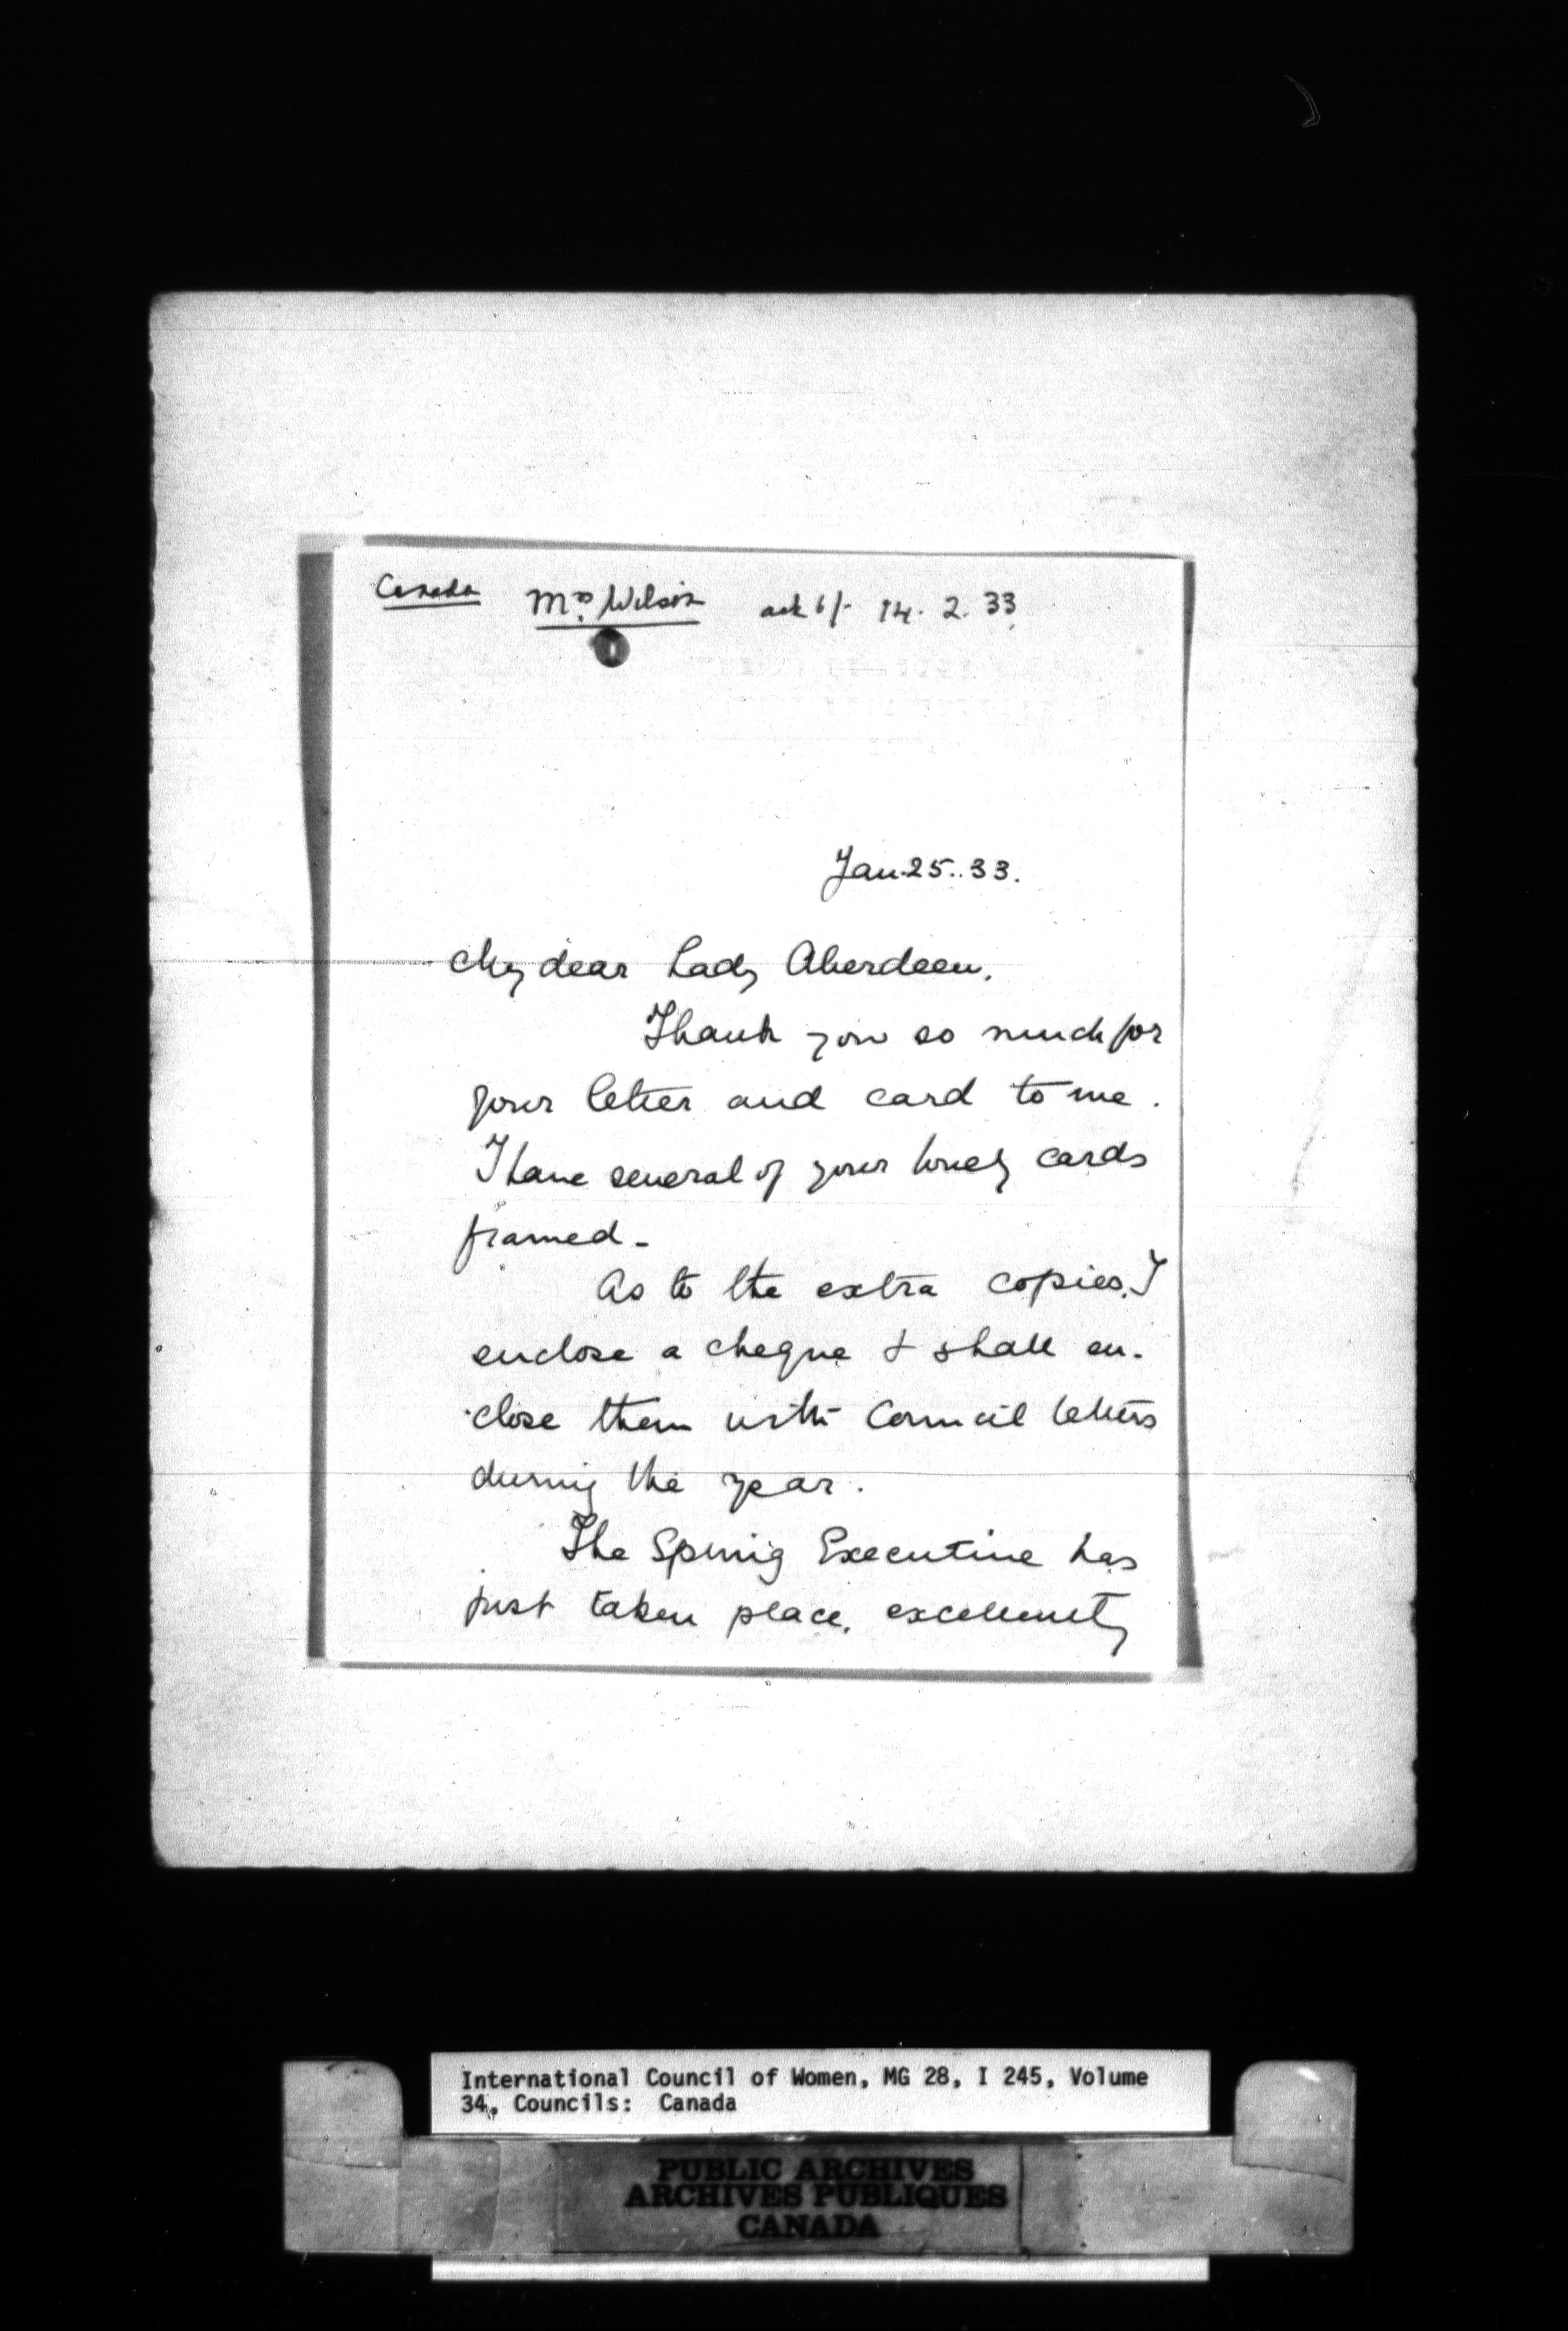 Canada Mrs. Wilson ack 6/- 14. 2. 33
Jan. 25..33.
My dear Lady Aberdeen,
Thank you so much for
your letter and card to me.
I have several of your lovely cards
framed -
As to the extra copies, I
enclose a cheque & shall en-
close them with Council letters
during the year.
The Spring Executive has
just taken place, excellently
International Council of Women, MG 28, I 245, Volume
34, Councils: Canada
PUBLIC ARCHIVES
ARCHIVES PUBLIQUES
CANADA